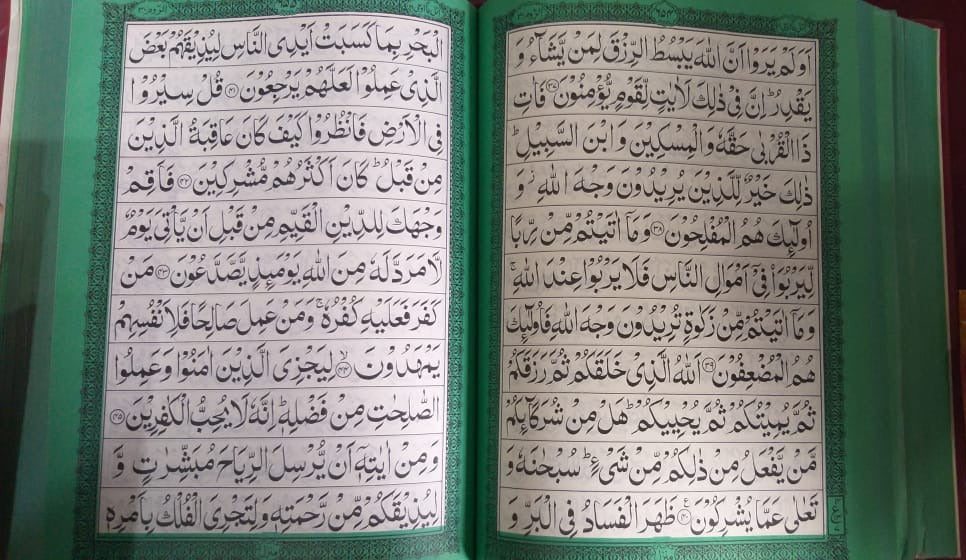 اَوَلَمْ يَرَوْا اَنَّ اللّٰهَ يَبْسُطُ الرِّزْقَ لِمَنْ يَّشَآءُ وَ
يَقْدِرُ ؕ اِنَّ فِىْ ذٰلِكَ لَاٰيٰتٍ لِّقَوْمٍ يُّؤْمِنُوْنَ ﴿۳۷﴾ فَاٰتِ
ذَا الْقُرْبٰى حَقَّهٗ وَالْمِسْكِيْنَ وَابْنَ السَّبِيْلِ ؕ
ذٰلِكَ خَيْرٌ لِّلَّذِيْنَ يُرِيْدُوْنَ وَجْهَ اللّٰهِ ؗ وَ
اُولٰٓئِكَ هُمُ الْمُفْلِحُوْنَ ﴿۳۸﴾ وَمَاۤ اٰتَيْتُمْ مِّنْ رِّبًا
لِّيَرْبُوَا۟ فِىْۤ اَمْوَالِ النَّاسِ فَلَا يَرْبُوْا عِنْدَ اللّٰهِ ۚ
وَمَاۤ اٰتَيْتُمْ مِّنْ زَكٰوةٍ تُرِيْدُوْنَ وَجْهَ اللّٰهِ فَاُولٰٓئِكَ
هُمُ الْمُضْعِفُوْنَ ﴿۳۹﴾ اَللّٰهُ الَّذِىْ خَلَقَكُمْ ثُمَّ رَزَقَكُمْ
ثُمَّ يُمِيْتُكُمْ ثُمَّ يُحْيِيْكُمْ ؕ هَلْ مِنْ شُرَكَآئِكُمْ
مَّنْ يَّفْعَلُ مِنْ ذٰلِكُمْ مِّنْ شَىْءٍ ؕ سُبْحٰنَهٗ وَ
تَعٰلٰى عَمَّا يُشْرِكُوْنَ ﴿۴۰﴾ ظَهَرَ الْفَسَادُ فِى الْبَرِّ وَ
الْبَحْرِ بِمَا كَسَبَتْ اَيْدِى النَّاسِ لِيُذِيْقَهُمْ بَعْضَ
الَّذِىْ عَمِلُوْا لَعَلَّهُمْ يَرْجِعُوْنَ ﴿۴۱﴾ قُلْ سِيْرُوْا
فِى الْاَرْضِ فَانْظُرُوْا كَيْفَ كَانَ عَاقِبَةُ الَّذِيْنَ
مِنْ قَبْلُ ؕ كَانَ اَكْثَرُهُمْ مُّشْرِكِيْنَ ﴿۴۲﴾ فَاَقِمْ
وَجْهَكَ لِلدِّيْنِ الْقَيِّمِ مِنْ قَبْلِ اَنْ يَّاْتِىَ يَوْمٌ
لَّا مَرَدَّ لَهٗ مِنَ اللّٰهِ يَوْمَئِذٍ يَّصَّدَّعُوْنَ ﴿۴۳﴾ مَنْ
كَفَرَ فَعَلَيْهِ كُفْرُهٗ ۚ وَمَنْ عَمِلَ صَالِحًا فَلِاَنْفُسِهِمْ
يَمْهَدُوْنَ ﴿۴۴﴾ لِيَجْزِىَ الَّذِيْنَ اٰمَنُوْا وَعَمِلُوا
الصّٰلِحٰتِ مِنْ فَضْلِهٖ ؕ اِنَّهٗ لَا يُحِبُّ الْكٰفِرِيْنَ ﴿۴۵﴾
وَمِنْ اٰيٰتِهٖۤ اَنْ يُّرْسِلَ الرِّيَاحَ مُبَشِّرٰتٍ وَّ
لِيُذِيْقَكُمْ مِّنْ رَّحْمَتِهٖ وَلِتَجْرِىَ الْفُلْكُ بِاَمْرِهٖ